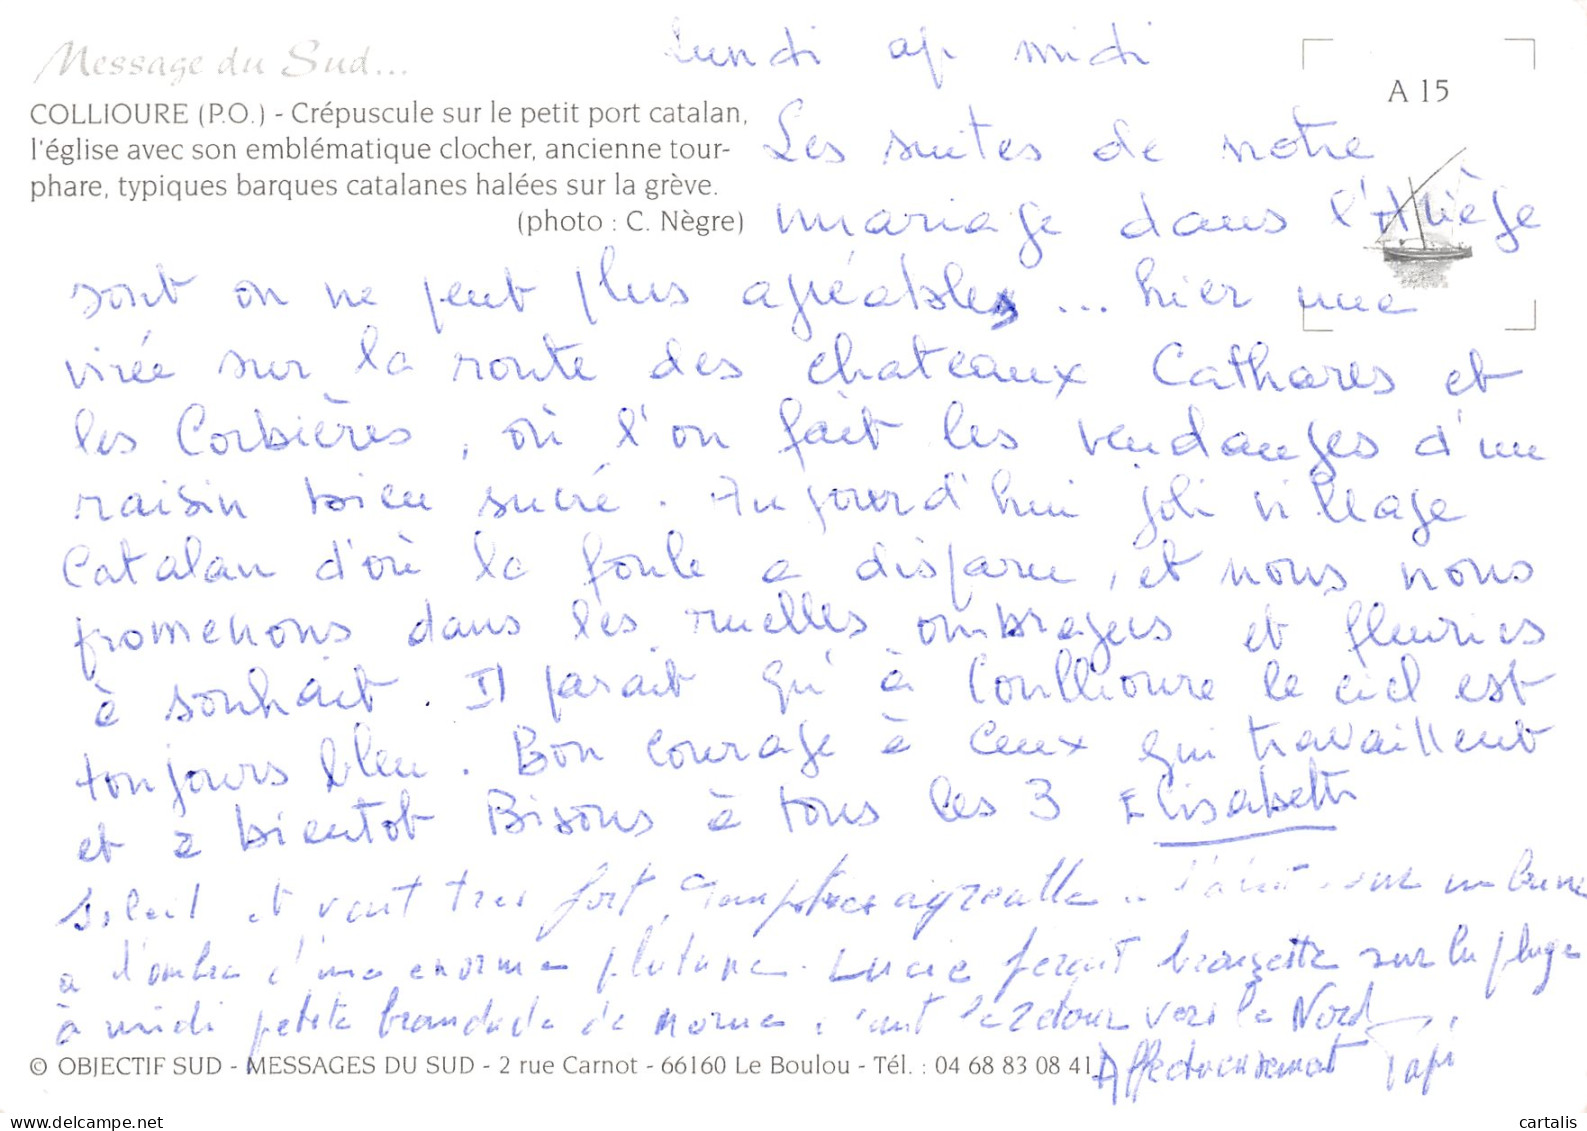 Message du Sud...
COLLIOURE (P.O.) - Crépuscule sur le petit port catalan,
l'église avec son emblématique clocher, ancienne tour-
phare, typiques barques catalanes halées sur la grève.
(photo : C. Nègre)
A 15
Lundi ap midi
Les suites de notre
mariage dans l'Ariège
sont on ne peut plus agréables... hier une
virée sur la route des chateaux Cathares et
les Corbières, où l'on fait les vendanges d'un
raisin bien sucré. Aujourd'hui joli village
Catalan d'où la foule a disparu, et nous nous
promenons dans les ruelles ombragées et fleuries
à souhait. Il parait qu'à Coullioure le ciel est
toujours bleu. Bon courage à ceux qui travaillent
et à bientot Bisous à tous les 3 Elisabeth
Soleil et vent tres fort, agreable.. sur un banc
a l'ombre d'une enorme platane. Lucie ferait bronzette sur la plage
à midi petite brandade de morue. retour vers le Nord
Affectueusement Papi
© OBJECTIF SUD - MESSAGES DU SUD - 2 rue Carnot - 66160 Le Boulou - Tél. : 04 68 83 08 41
www.delcampe.net
cartalis